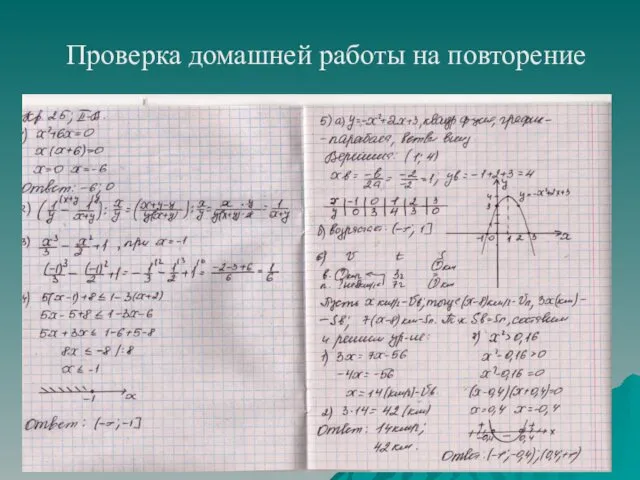 Проверка домашней работы на повторение
1) x²+6x=0
x(x+6)=0
x=0 x=-6
Ответ: -6; 0
2) (1/y - 1/(x+y)) : x/y = ((x+y-y)/(y(x+y))) : x/y = (x·y)/(y(x+y)·x) = 1/(x+y)
3) x³/3 - x²/2 + 1, при x=-1
(-1)³/3 - (-1)²/2 + 1 = -1/3 - 1/2 + 1 = (-2-3+6)/6 = 1/6
4) 5(x-1)+8≤1-3(x+2)
5x-5+8≤1-3x-6
5x+3x≤1-6+5-8
8x≤-8 |:8
x≤-1
-1 x
Ответ: (-∞; -1]
5) а) y=-x²+2x+3, квадр. функ., график -
- парабола, ветви вниз
Вершина: (1; 4)
xв = -b/2a = -2/-2 = 1; yв = -1+2+3=4
x -1 0 1 2 3
y 0 3 4 3 0
y=-x²+2x+3
y
4
3
-1 0 1 2 3 x
б) возрастает (-∞; 1]
6) V t S
3ч
7ч
Пусть x км/ч - Vв, тогда (x-8) км/ч - Vп, 3x (км) -
- Sв; 7(x-8) км - Sп. Т.к. Sв=Sп, составим
и решим ур-ие:
1) 3x=7x-56
-4x=-56
x=14 (км/ч) - Vв.
2) 3·14=42 (км)
Ответ: 14 км/ч;
42 км.
7) x²>0,16
x²-0,16>0
x²-0,16=0
(x-0,4)(x+0,4)=0
x=0,4 x=-0,4
+ - +
-0,4 0,4 x
Ответ: (-∞; -0,4); (0,4; +∞)